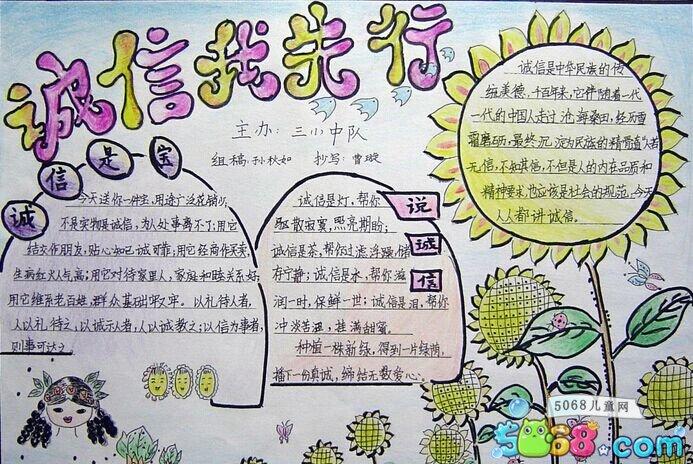 诚信我先行
主办：三小中队
组稿：孙秋如 抄写：曹璇
诚信是宝
今天送你一件宝，用途广泛花销小，
不是实物是诚信，为人处事离不了；用它
结交作朋友，贴心知己诚可靠；用它经商作买卖，
生病红火人气高；用它对待家里人，家庭和睦关系好
用它维系老百姓，群众基础牢又牢。以礼待人者，
人以礼待之，以诚示人者，人以诚教之；以信为事者，
则事可达之
说诚信
诚信是灯，帮你
驱散寂寞，照亮期盼；
诚信是茶，帮你过滤浮躁，储
存宁静；诚信是水，帮你滋
润一时，保鲜一世；诚信是泪，帮你
冲淡苦涩，挂满甜蜜。
种植一株新绿，得到一片绿荫，
播下一份真诚，缔结无数爱心。
诚信是中华民族的传
统美德，千百年来，它伴随着一代
一代的中国人走过沧海桑田，经历雪
霜磨砺，最终沉淀为民族的精骨。
无信，不知其信，不但是人的内在品质和
精神要求也应该是社会的规范，今天
人人都讲诚信。
5068儿童网
5068.com